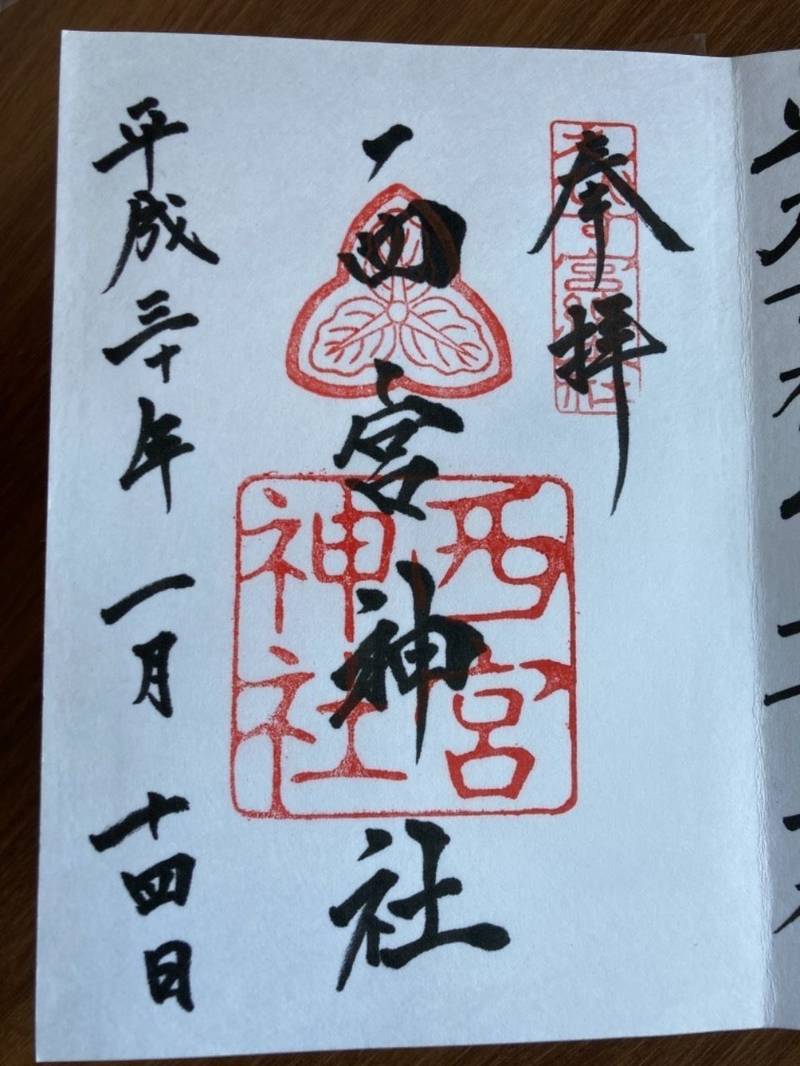 奉拝
西宮神社
西宮神社
平成三十年一月十四日